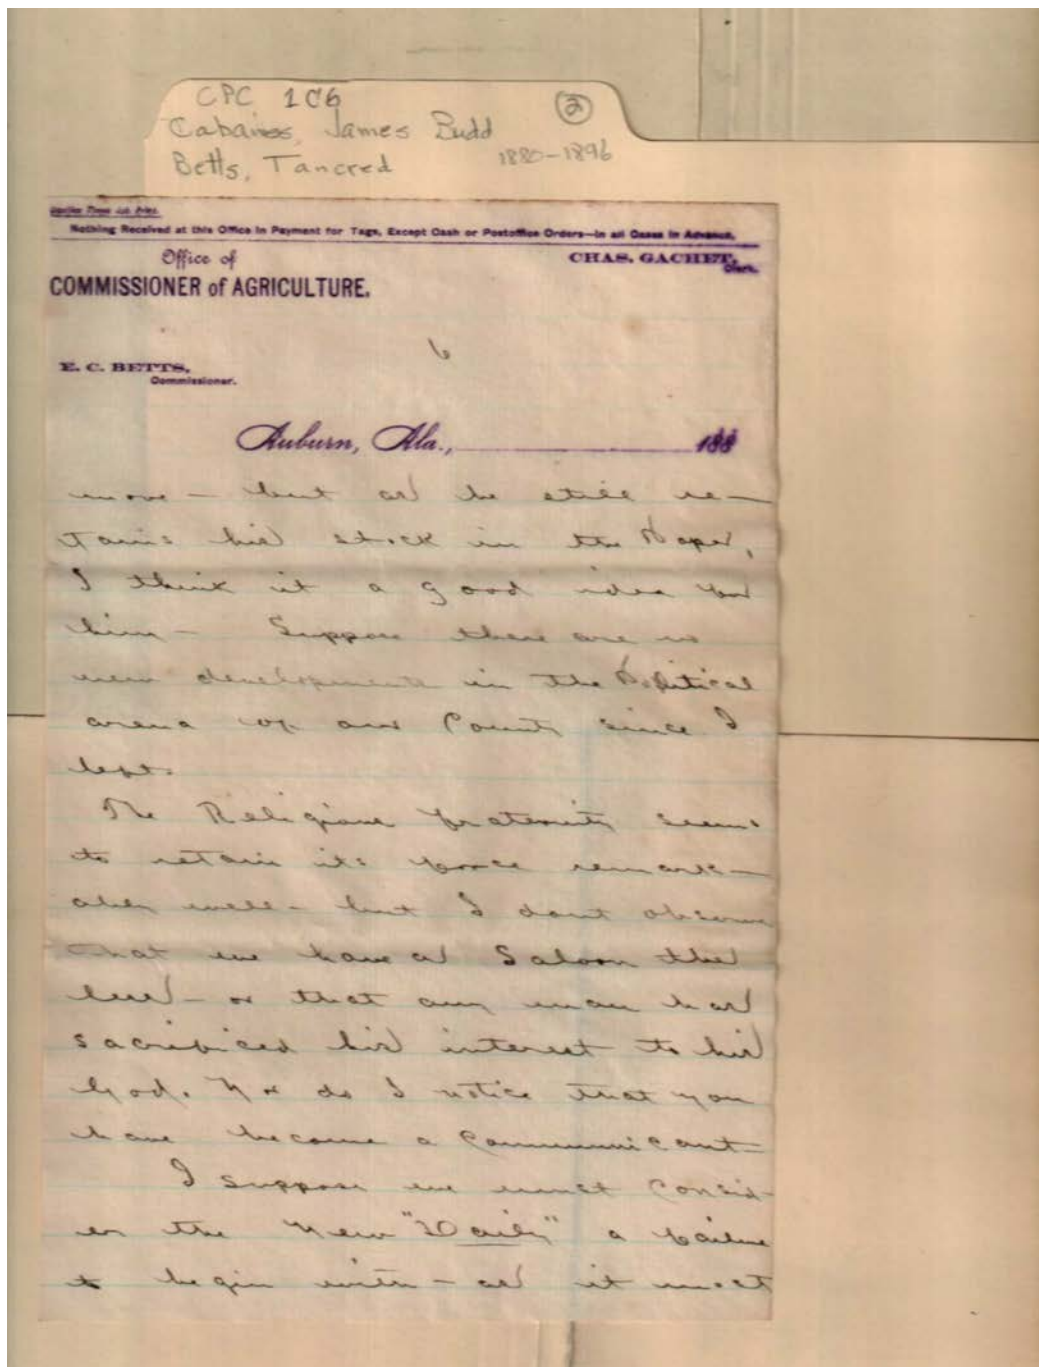 CPC 1C6
(2)
Cabaniss, James Budd
1880-1896
Betts, Tancred
Nothing Received at this Office in Payment for Tags, Except Cash or Postoffice Orders—in all Cases in Advance.
Office of
CHAS. GACHET,
Clerk.
COMMISSIONER of AGRICULTURE.
6
E. C. BETTS,
Commissioner.
Auburn, Ala., 188
move - but as he still re-
tains his stock in the Paper,
I think it a good idea for
him - Suppose there are no
new developments in the Political
arena of our County since I
left.
The Religious fraternity seems
to retain its force remark-
ably well - but I dont observe
that we have a Saloon the
less - or that any man has
sacrificed his interest to his
God. Nor do I notice that you
have become a Communicant -
I suppose we must Consid-
er the New "Daily" a failure
to begin with - as it most